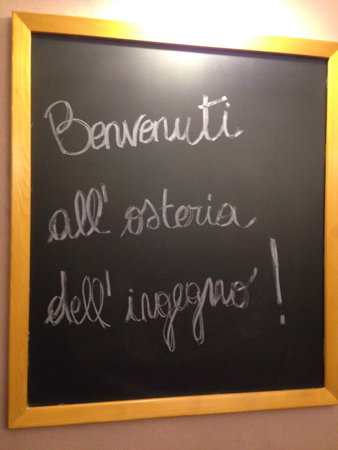 Benvenuti
all' osteria
dell' ingegno!